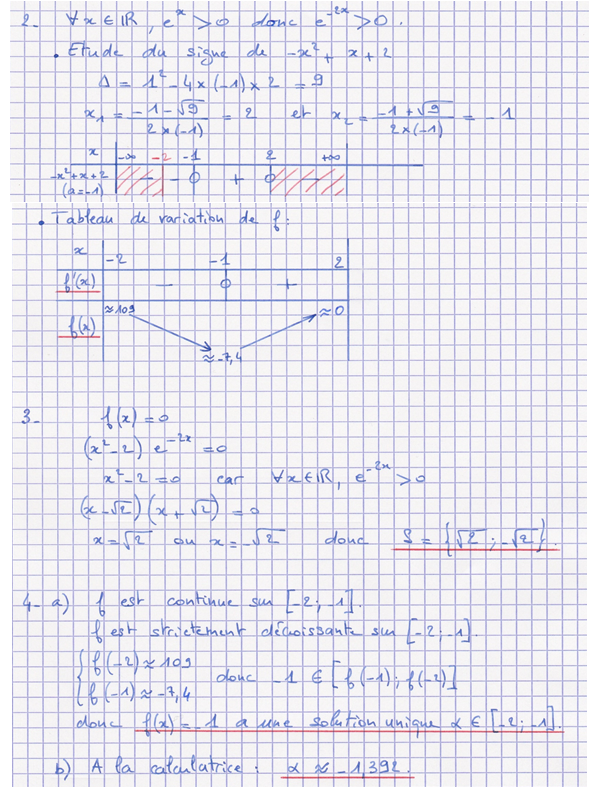 2- ∀x ∈ ℝ, e^x > 0 donc e^{-2x} > 0.
• Etude du signe de -x² + x + 2
Δ = 1² - 4×(-1)×2 = 9
x₁ = (-1-√9)/(2×(-1)) = 2 et x₂ = (-1+√9)/(2×(-1)) = -1
x -∞ -2 -1 2 +∞
-x²+x+2 - - 0 + 0 -
(a=-1)
• Tableau de variation de f:
x -2 -1 2
f'(x) - 0 +
≈109 ≈0
f(x)
≈-7,4
3- f(x) = 0
(x²-2) e^{-2x} = 0
x²-2 = 0 car ∀x ∈ ℝ, e^{-2x} > 0
(x-√2)(x+√2) = 0
x = √2 ou x = -√2 donc S = {√2 ; -√2}.
4- a) f est continue sur [-2; -1].
f est strictement décroissante sur [-2; -1].
{ f(-2) ≈ 109
donc -1 ∈ [f(-1); f(-2)]
{ f(-1) ≈ -7,4
donc f(x) = -1 a une solution unique α ∈ [-2; -1].
b) A la calculatrice : α ≈ -1,392.